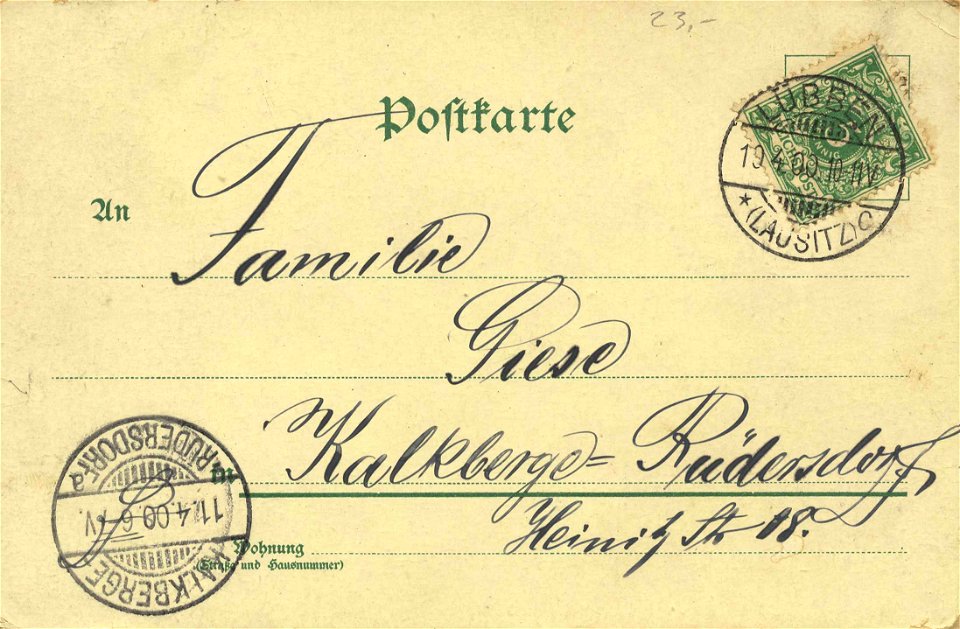 23,-
Postkarte
LÜBBEN
19.4.00.10-11V
*(LAUSITZ)c
An
Familie
Giese
in
Kalkberge=Rüdersdorf
Heinitz Str. 18.
Wohnung
(Straße und Hausnummer)
KALKBERGE
11.4.00.6-7V.
RÜDERSDORF a